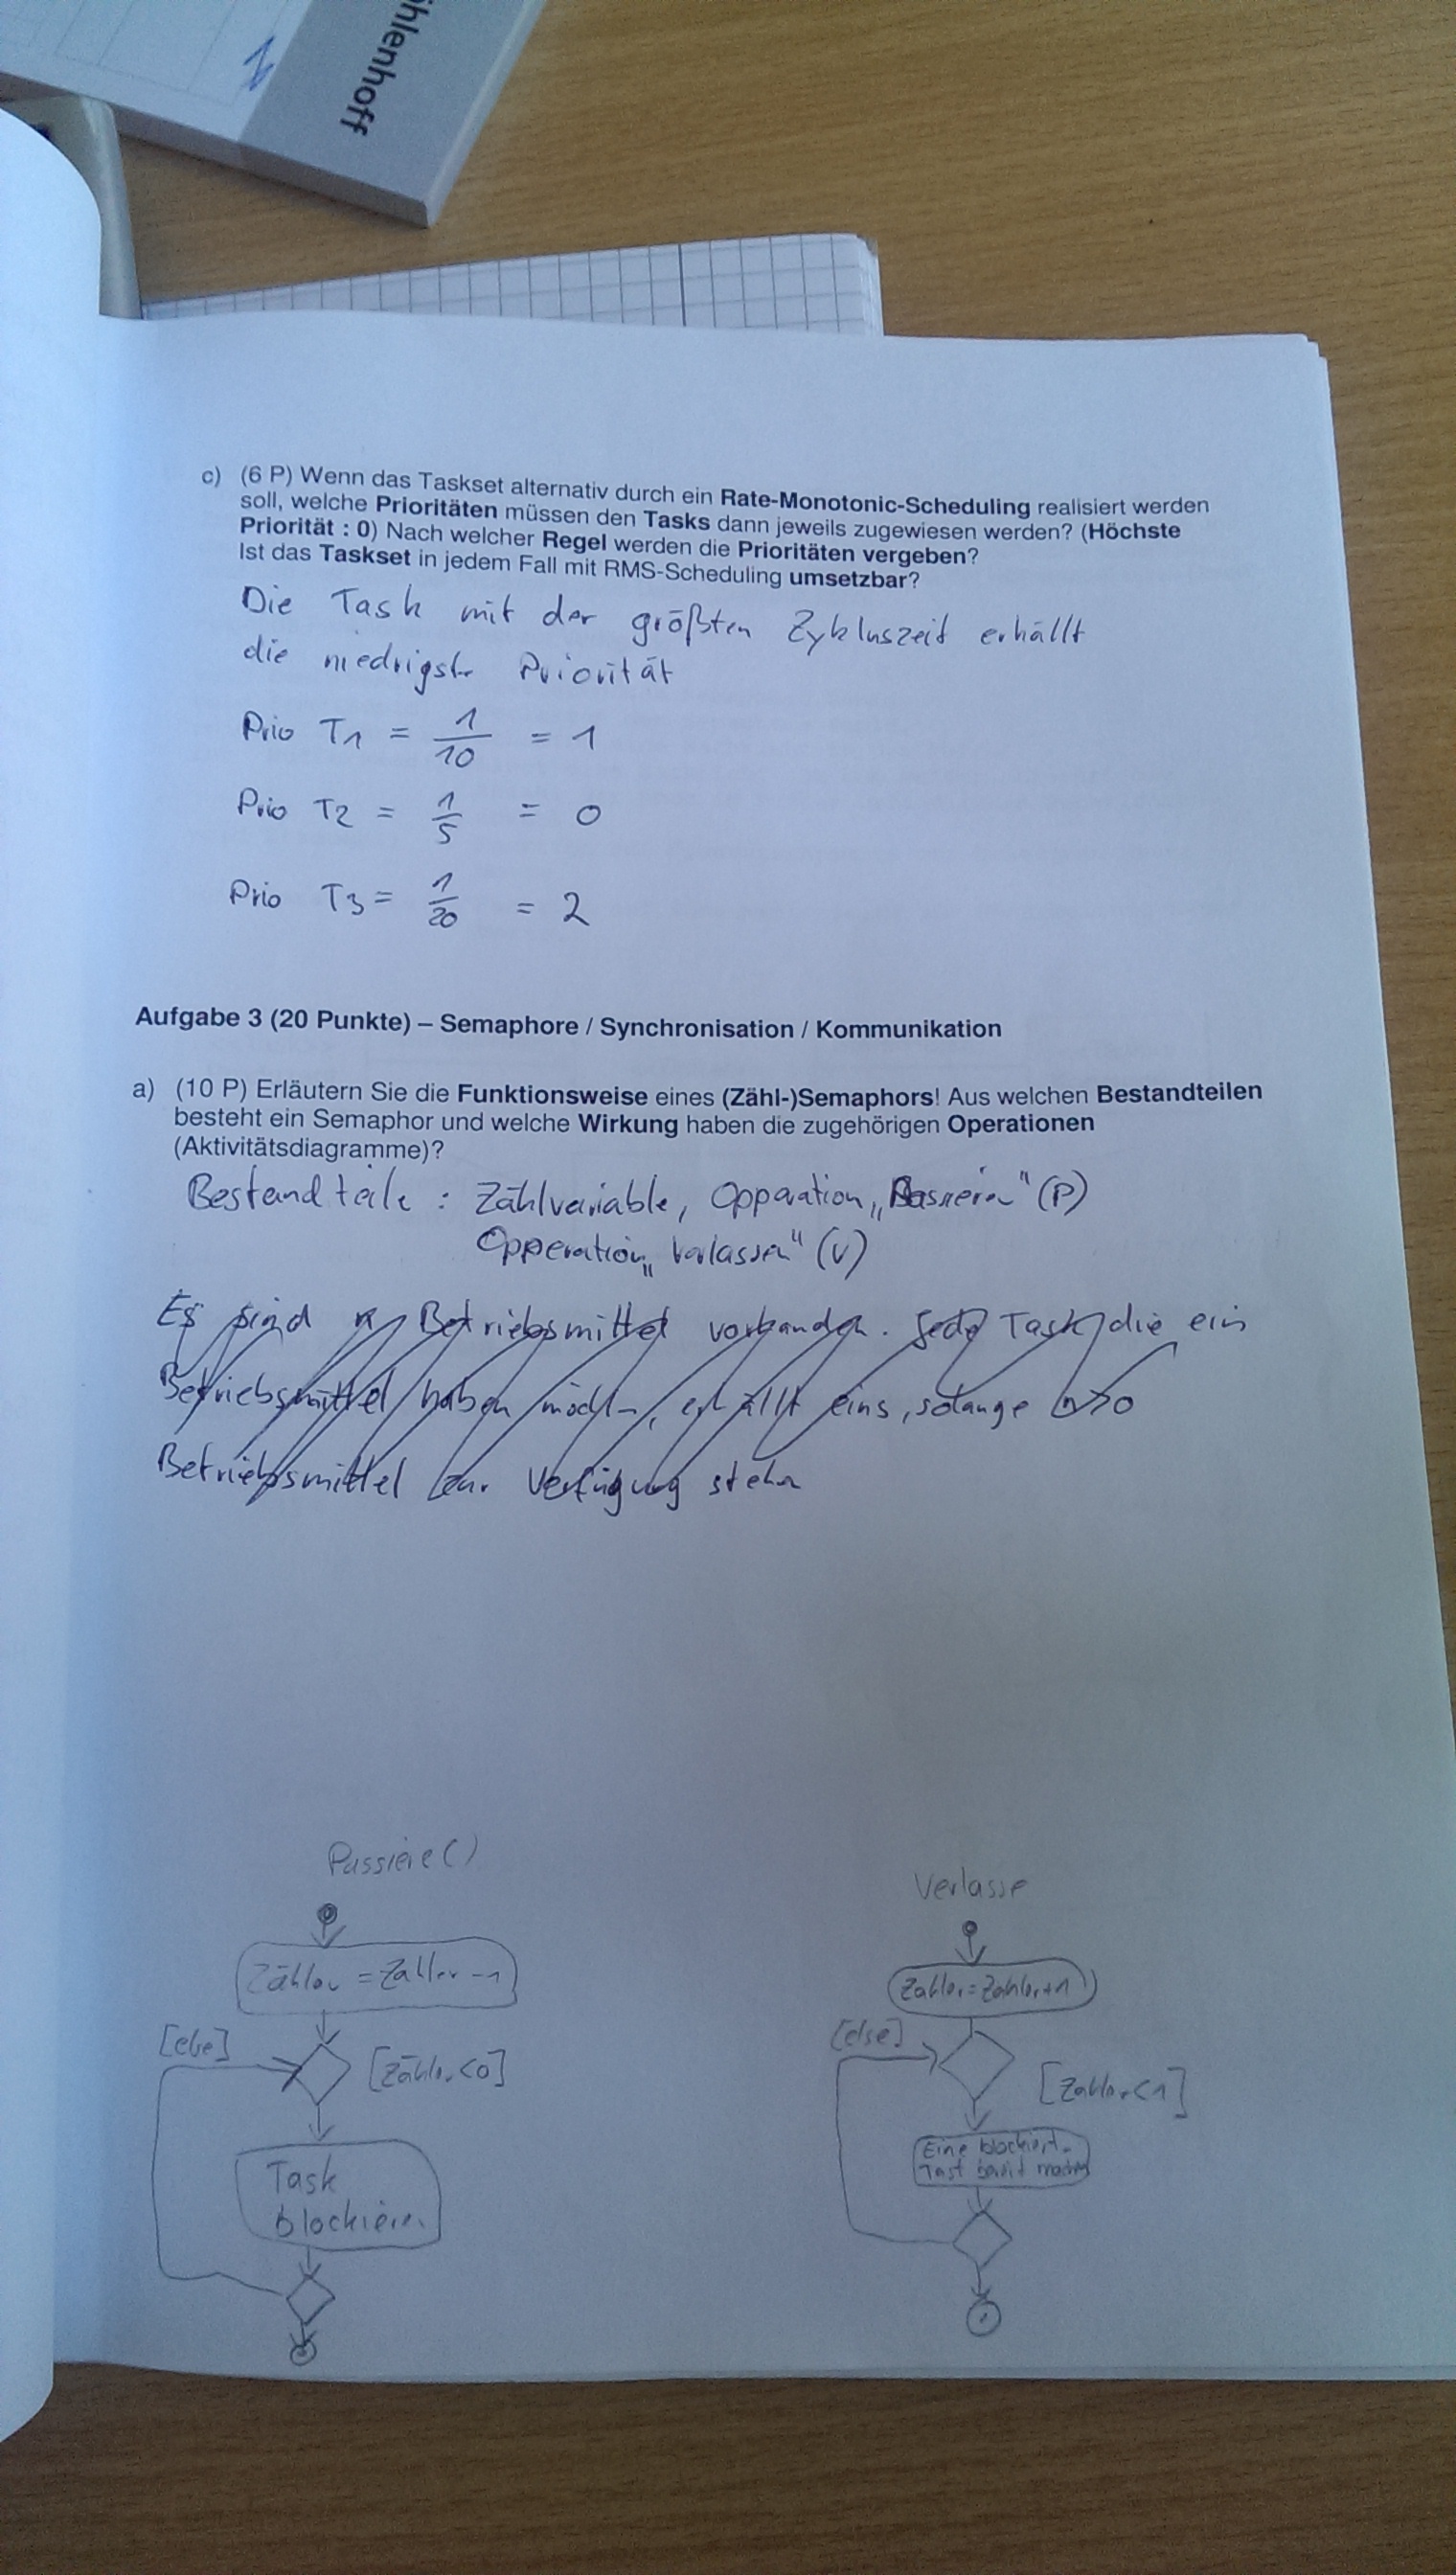 hlenhoff
c) (6 P) Wenn das Taskset alternativ durch ein Rate-Monotonic-Scheduling realisiert werden
soll, welche Prioritäten müssen den Tasks dann jeweils zugewiesen werden? (Höchste
Priorität : 0) Nach welcher Regel werden die Prioritäten vergeben?
Ist das Taskset in jedem Fall mit RMS-Scheduling umsetzbar?
Die Task mit der größten Zykluszeit erhällt
die niedrigste Priorität
Prio T1 = 1/10 = 1
Prio T2 = 1/5 = 0
Prio T3 = 1/20 = 2
Aufgabe 3 (20 Punkte) – Semaphore / Synchronisation / Kommunikation
a) (10 P) Erläutern Sie die Funktionsweise eines (Zähl-)Semaphors! Aus welchen Bestandteilen
besteht ein Semaphor und welche Wirkung haben die zugehörigen Operationen
(Aktivitätsdiagramme)?
Bestandteile : Zählvariable, Opperation „Passieren" (P)
Opperation „Verlassen" (V)
Es sind n Betriebsmittel vorhanden. Jede Task, die ein
Betriebsmittel haben möchte, erhällt eins, solange n>0
Betriebsmittel zur Verfügung stehen
Passiere()
Zähler = Zähler -1
[else]
[Zähler<0]
Task
blockieren
Verlasse
Zähler=Zähler+1
[else]
[Zähler<1]
Eine blockierte
Task bereit machen